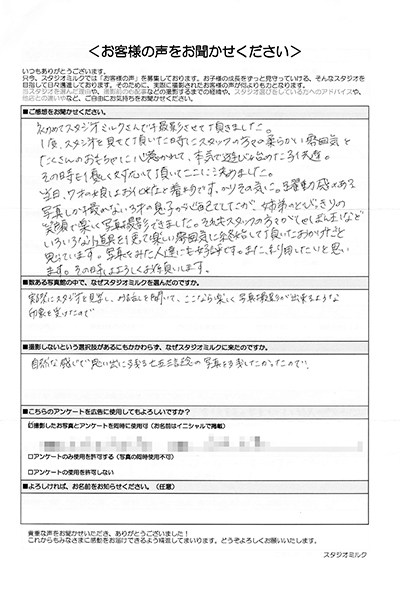 ＜お客様の声をお聞かせください＞
いつもありがとうございます。
只今、スタジオミルクでは「お客様の声」を募集しております。お子様の成長をずっと見守っていける、そんなスタジオを
目指して日々邁進しております。そのために、実際に撮影されたお客様の声が何よりも力となります。
■ご感想をお聞かせください。
初めてスタジオミルクさんで撮影させて頂きました。
1度、スタジオを見せて頂いた時にスタッフの方々の柔らかい雰囲気と
たくさんのおもちゃに心惹かれて、本気で遊び始めた子供達。
その時も優しく対応して頂いてここに決めました。
笑顔で楽しく写真撮影できました。それもスタッフの方々が
いろいろな小道具を使って楽しい雰囲気に
思っています。写真をみた人達にも好評です。また、利用したいと思い
ます。その時はよろしくお願いします。
■数ある写真館の中で、なぜスタジオミルクを選んだのですか。
実際にスタジオを見学し、お話しを聞いて、ここなら楽しく写真撮影が出来るような
印象を受けたので
■撮影しないという選択肢があるにもかかわらず、なぜスタジオミルクに来たのですか。
自然な感じで思い出に残る七五三記念の写真を残したかったので。
■こちらのアンケートを広告に使用してもよろしいですか？
☑撮影したお写真とアンケートを同時に使用可（お名前はイニシャルで掲載）
□アンケートのみ使用を許可する（写真の同時使用不可）
□アンケートの使用を許可しない
■よろしければ、お名前をお知らせください。（任意）
貴重な声をお聞かせいただき、ありがとうございました！
これからもみなさまに感動をお届けできるよう精進してまいります。どうぞよろしくお願いいたします。
スタジオミルク